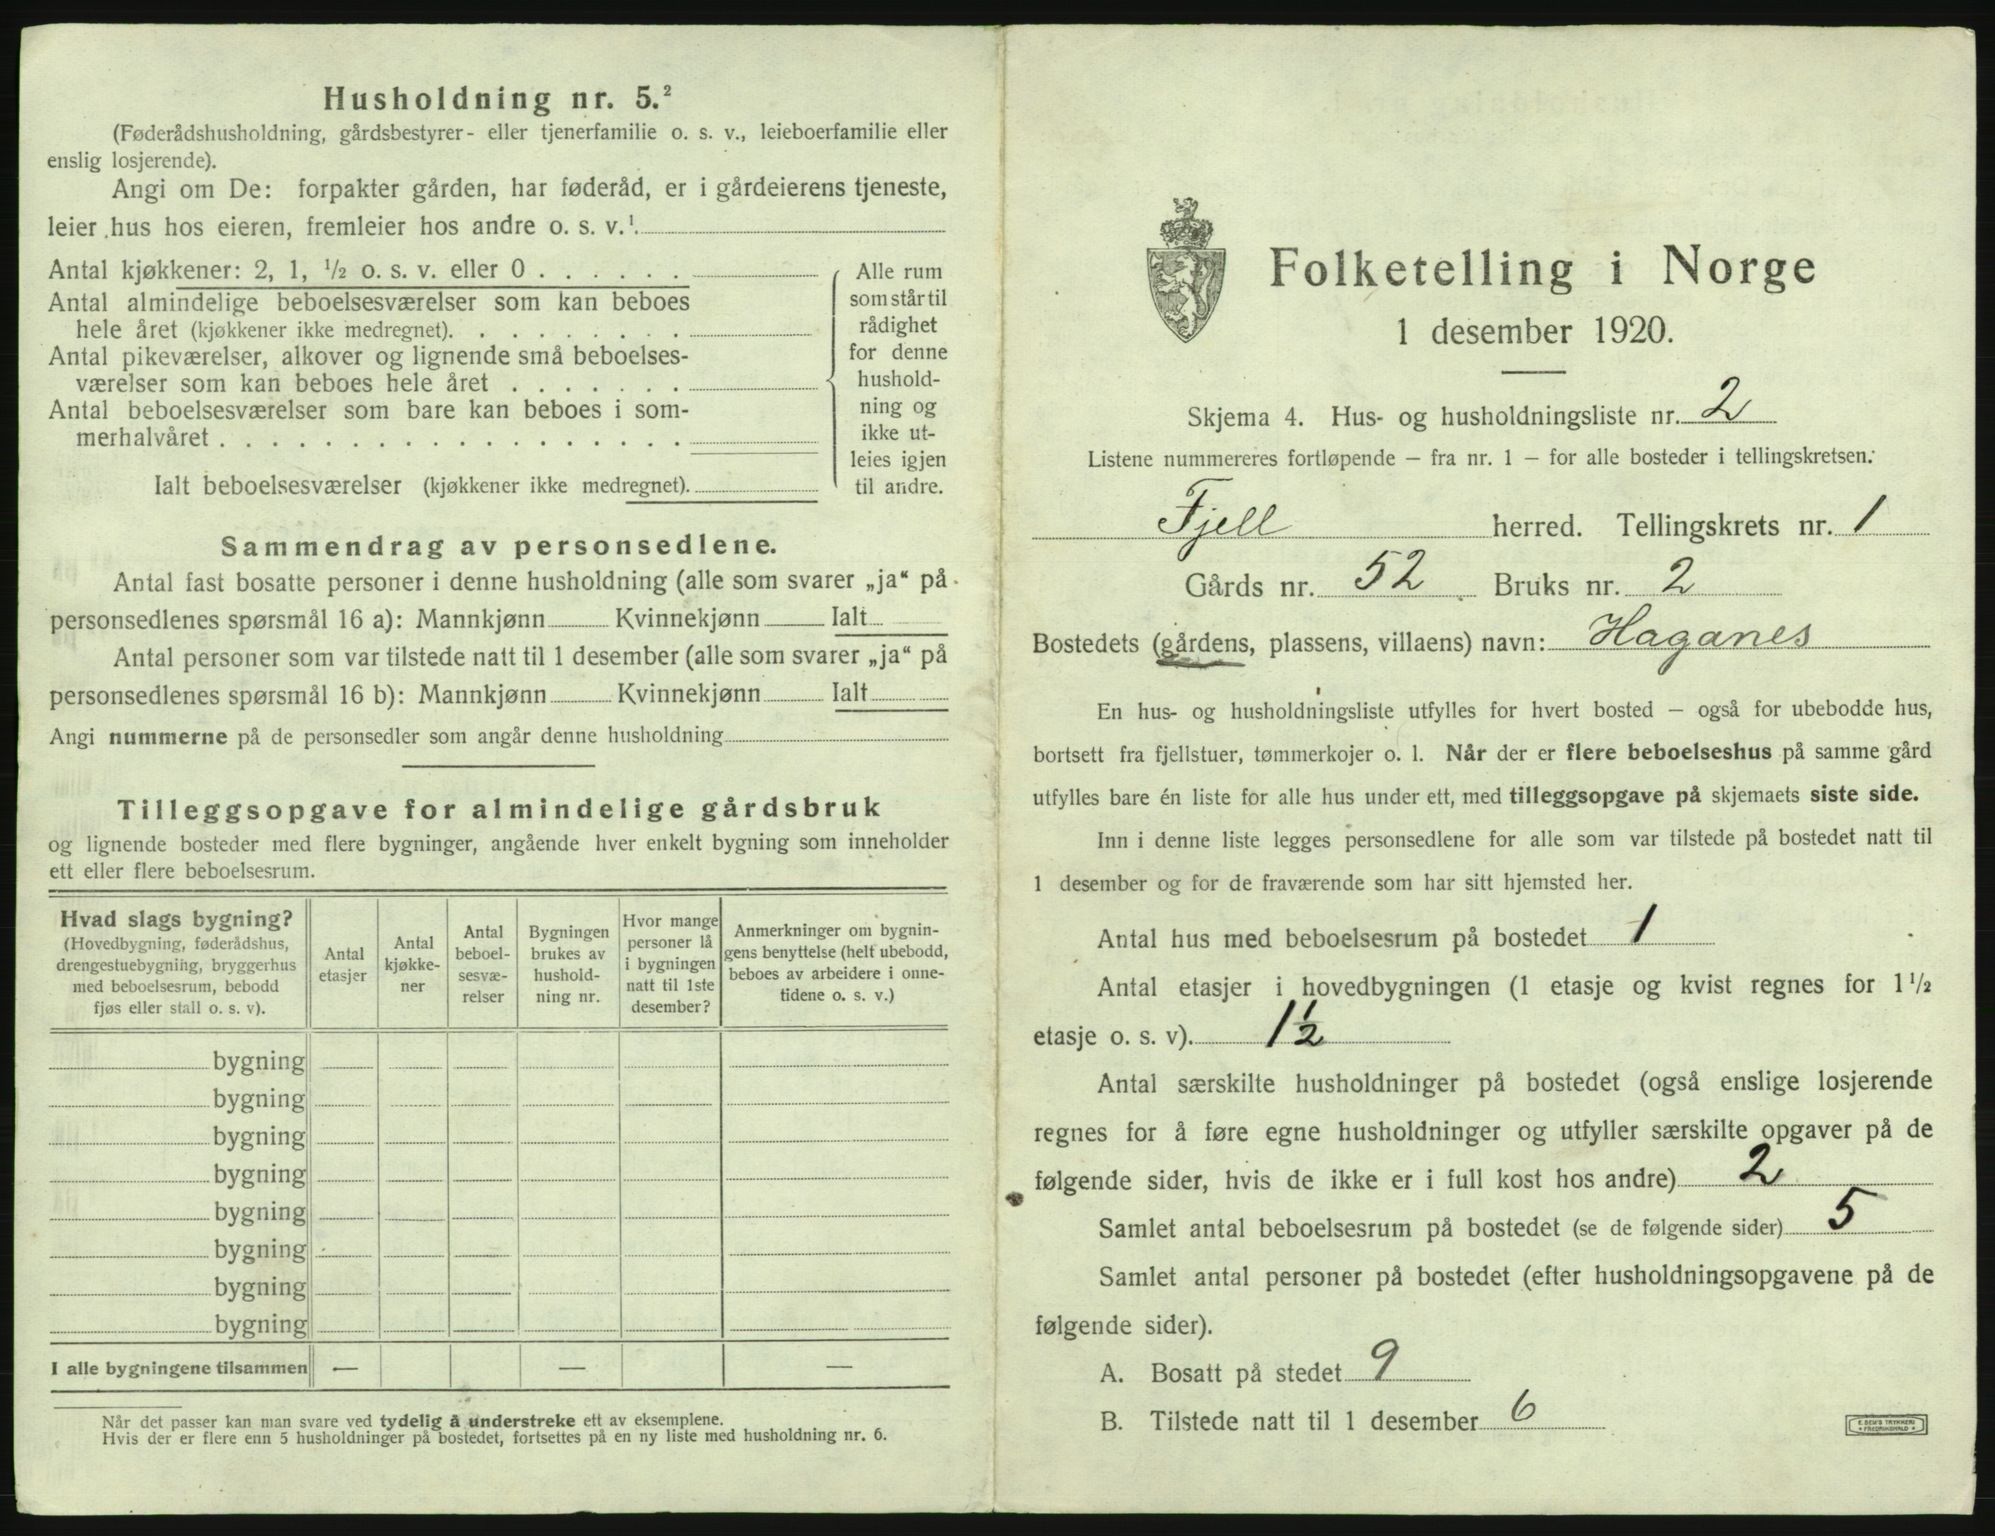 Husholdning nr. 5.²
(Føderådshusholdning, gårdsbestyrer- eller tjenerfamilie o. s. v., leieboerfamilie eller
enslig losjerende).
Angi om De: forpakter gården, har føderåd, er i gårdeierens tjeneste,
leier hus hos eieren, fremleier hos andre o. s. v.¹.
Antal kjøkkener: 2, 1, ½ o. s. v. eller 0 . . . . . .
Antal almindelige beboelsesværelser som kan beboes
hele året (kjøkkener ikke medregnet). . . . . . . . .
Antal pikeværelser, alkover og lignende små beboelses-
værelser som kan beboes hele året . . . . . . .
Antal beboelsesværelser som bare kan beboes i som-
merhalvåret . . . . . . . . . . . . . . . . . .
Ialt beboelsesværelser (kjøkkener ikke medregnet).
Alle rum
som står til
rådighet
for denne
hushold-
ning og
ikke ut-
leies igjen
til andre.
Sammendrag av personsedlene.
Antal fast bosatte personer i denne husholdning (alle som svarer „ja“ på
personsedlenes spørsmål 16 a): Mannkjønn Kvinnekjønn Ialt
Antal personer som var tilstede natt til 1 desember (alle som svarer „ja“ på
personsedlenes spørsmål 16 b): Mannkjønn Kvinnekjønn Ialt
Angi nummerne på de personsedler som angår denne husholdning
Tilleggsopgave for almindelige gårdsbruk
og lignende bosteder med flere bygninger, angående hver enkelt bygning som inneholder
ett eller flere beboelsesrum.
Hvad slags bygning?
(Hovedbygning, føderådshus,
drengestuebygning, bryggerhus
med beboelsesrum, bebodd
fjøs eller stall o. s. v).
Antal
etasjer
Antal
kjøkke-
ner
Antal
beboel-
sesvæ-
relser
Bygningen
brukes av
hushold-
ning nr.
Hvor mange
personer lå
i bygningen
natt til 1ste
desember?
Anmerkninger om bygnin-
gens benyttelse (helt ubebodd,
beboes av arbeidere i onne-
tidene o. s. v.)
bygning
bygning
bygning
bygning
bygning
bygning
bygning
bygning
I alle bygningene tilsammen — — —
Når det passer kan man svare ved tydelig å understreke ett av eksemplene.
Hvis der er flere enn 5 husholdninger på bostedet, fortsettes på en ny liste med husholdning nr. 6.
Folketelling i Norge
1 desember 1920.
Skjema 4. Hus- og husholdningsliste nr. 2
Listene nummereres fortløpende – fra nr. 1 – for alle bosteder i tellingskretsen.
Fjell herred. Tellingskrets nr. 1
Gårds nr. 52 Bruks nr. 2
Bostedets (gårdens, plassens, villaens) navn: Haganes
En hus- og husholdningsliste utfylles for hvert bosted – også for ubebodde hus,
bortsett fra fjellstuer, tømmerkojer o. l. Når der er flere beboelseshus på samme gård
utfylles bare én liste for alle hus under ett, med tilleggsopgave på skjemaets siste side.
Inn i denne liste legges personsedlene for alle som var tilstede på bostedet natt til
1 desember og for de fraværende som har sitt hjemsted her.
Antal hus med beboelsesrum på bostedet 1
Antal etasjer i hovedbygningen (1 etasje og kvist regnes for 1½
etasje o. s. v). 1½
Antal særskilte husholdninger på bostedet (også enslige losjerende
regnes for å føre egne husholdninger og utfyller særskilte opgaver på de
følgende sider, hvis de ikke er i full kost hos andre) 2
Samlet antal beboelsesrum på bostedet (se de følgende sider) 5
Samlet antal personer på bostedet (efter husholdningsopgavene på de
følgende sider).
A. Bosatt på stedet 9
B. Tilstede natt til 1 desember 6
E. SEM'S TRYKKERI
FREDRIKSHALD